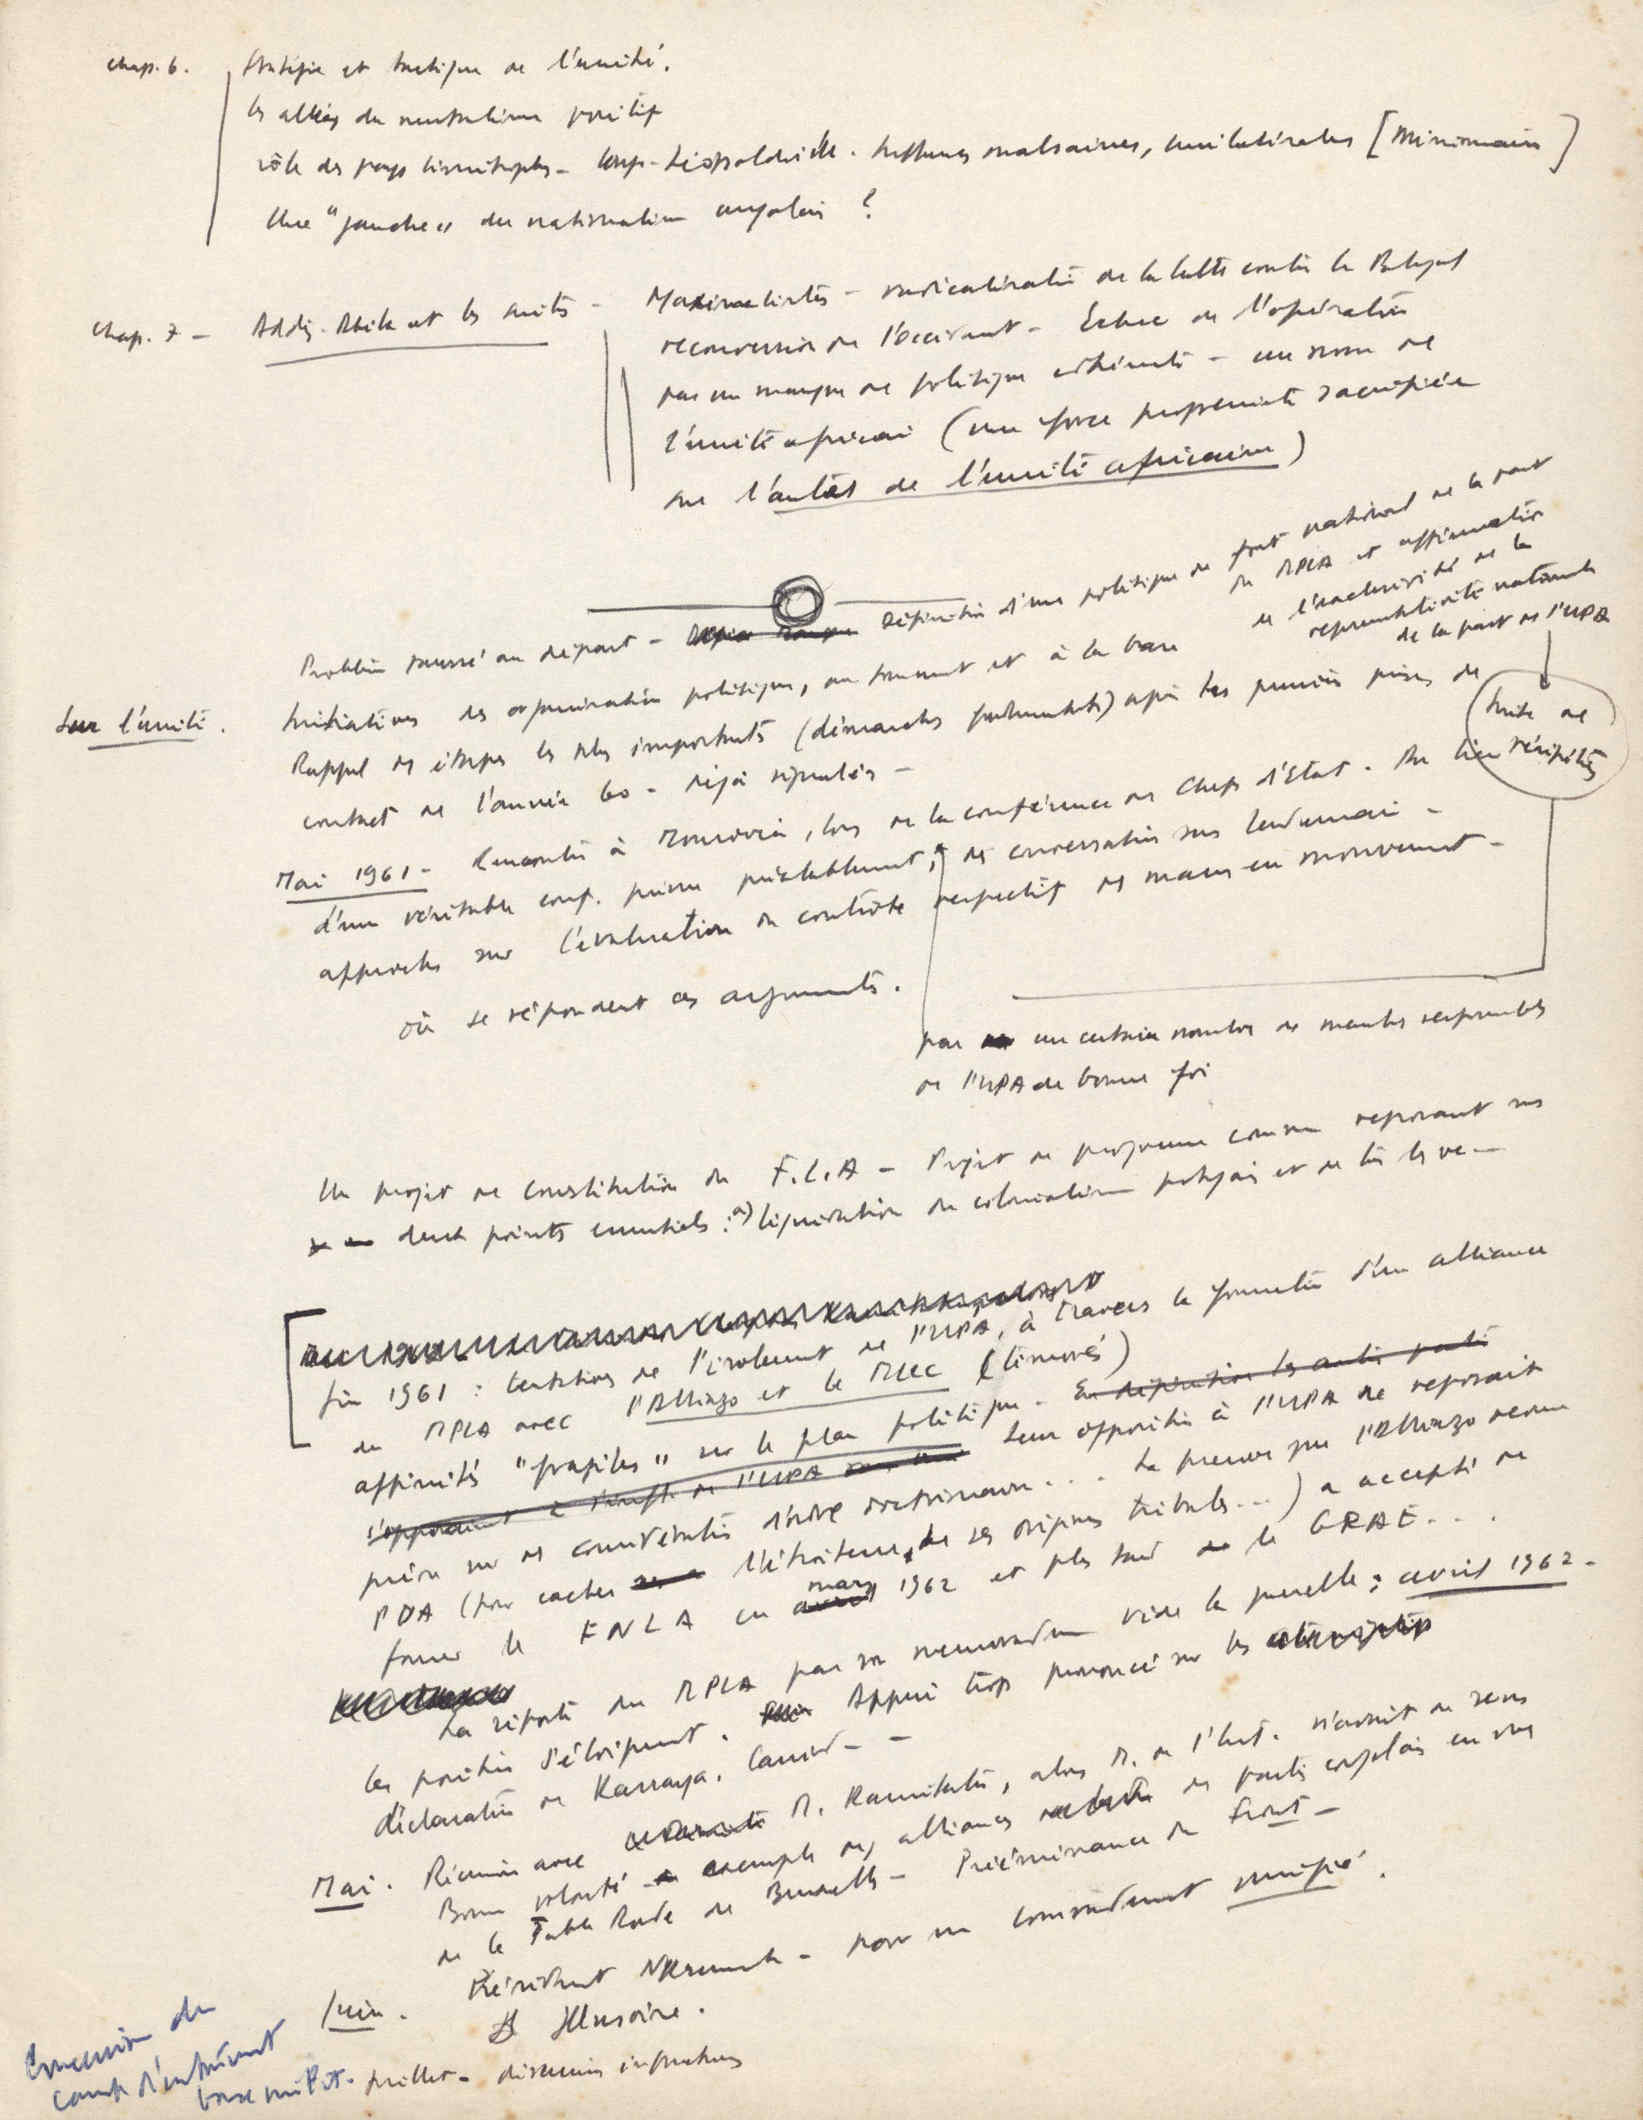 chap. 6. Stratégie et tactique de l'unité.
les alliés du neutralisme positif
rôle des pays limitrophes - Congo-Léopoldville. malsaines, unilatérales [
Une "gauche" du nationalisme angolais ?
chap. 7 - Addis-Abeba et les suites - Maximalistes - radicalisation de la lutte contre le Portugal
reconversion de l'occident - Echec de l'opération
par un manque de politique cohérente - au nom de
l'unité africaine (une force progressiste sacrifiée
sur l'autel de l'unité africaine)
Problème faussé au départ - Définition d'une politique de front national de la part
du MPLA et affirmation
de l'exclusivité de la
représentativité nationale
de la part de l'UPA
Sur l'unité. Initiatives des organisations politiques, au sommet et à la base
Rappel des étapes les plus importantes (démarches ) après les premières prises de
contact de l'année 60 - déjà signalées -
suite de
récipités
Mai 1961 - Rencontre à Monrovia, lors de la conférence des Chefs d'Etat. Au lieu
d'une véritable conf. prévue préalablement, des conversations sans lendemain -
approches sur l'évaluation du contrôle respectif des masses en mouvement -
où se répondent ces arguments.
par un certain nombre de membres responsables
de l'UPA de bonne foi
Un projet de constitution du F.L.A - Projet de programme commun reposant sur
deux points essentiels : a) liquidation du colonialisme portugais et de
fin 1961 : tentatives de l'isolement de l'UPA, à travers la formation d'une alliance
du MPLA avec l'Alliazo et le MLEC (timorés)
affinités "fragiles" sur le plan politique. En définitive les autres partis
s'opposaient à de l'UPA leur opposition à l'UPA ne reposait
pas sur des considérations d'ordre doctrinaire... La preuve que l'Alliazo devenu
PDA (pour cacher l'étroitesse de ses origines tribales...) a accepté de
former le FNLA en mars 1962 et plus tard le GRAE...
La riposte du MPLA par son memorandum vide la querelle : avril 1962 -
les positions s'éloignent. Appui trop prononcé sur les
déclaration de Kassanga,
Mai. Réunion avec M. Kamitatu, alors M. de l'Int. n'aurait de sens
Bonne volonté - exemple des alliances des partis congolais en vue
de la Table Ronde de Bruxelles - Prééminence du Front -
Juin. Président Nkrumah - pour un commandement unifié.
Illusoire.
Concession du
camp d'entraînement
base milit. juillet - discussions infructueuses